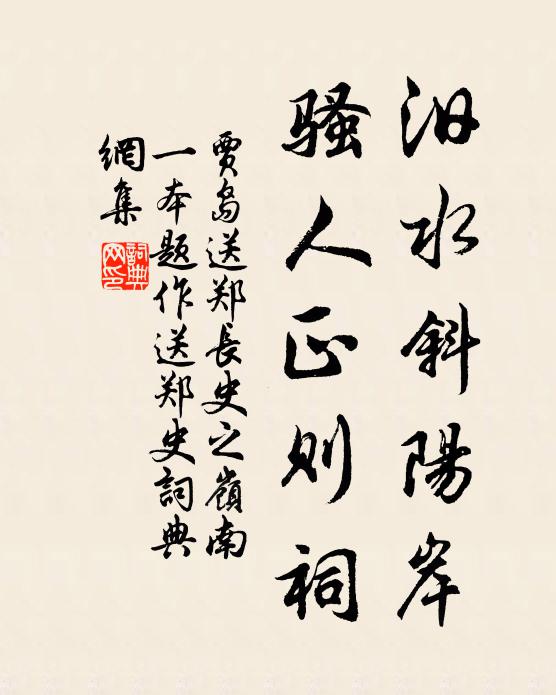 汨水斜陽岸
騷人正則祠
賈島送郑長史之嶺南
一本題作送郑史詞典
網集
詞典网印